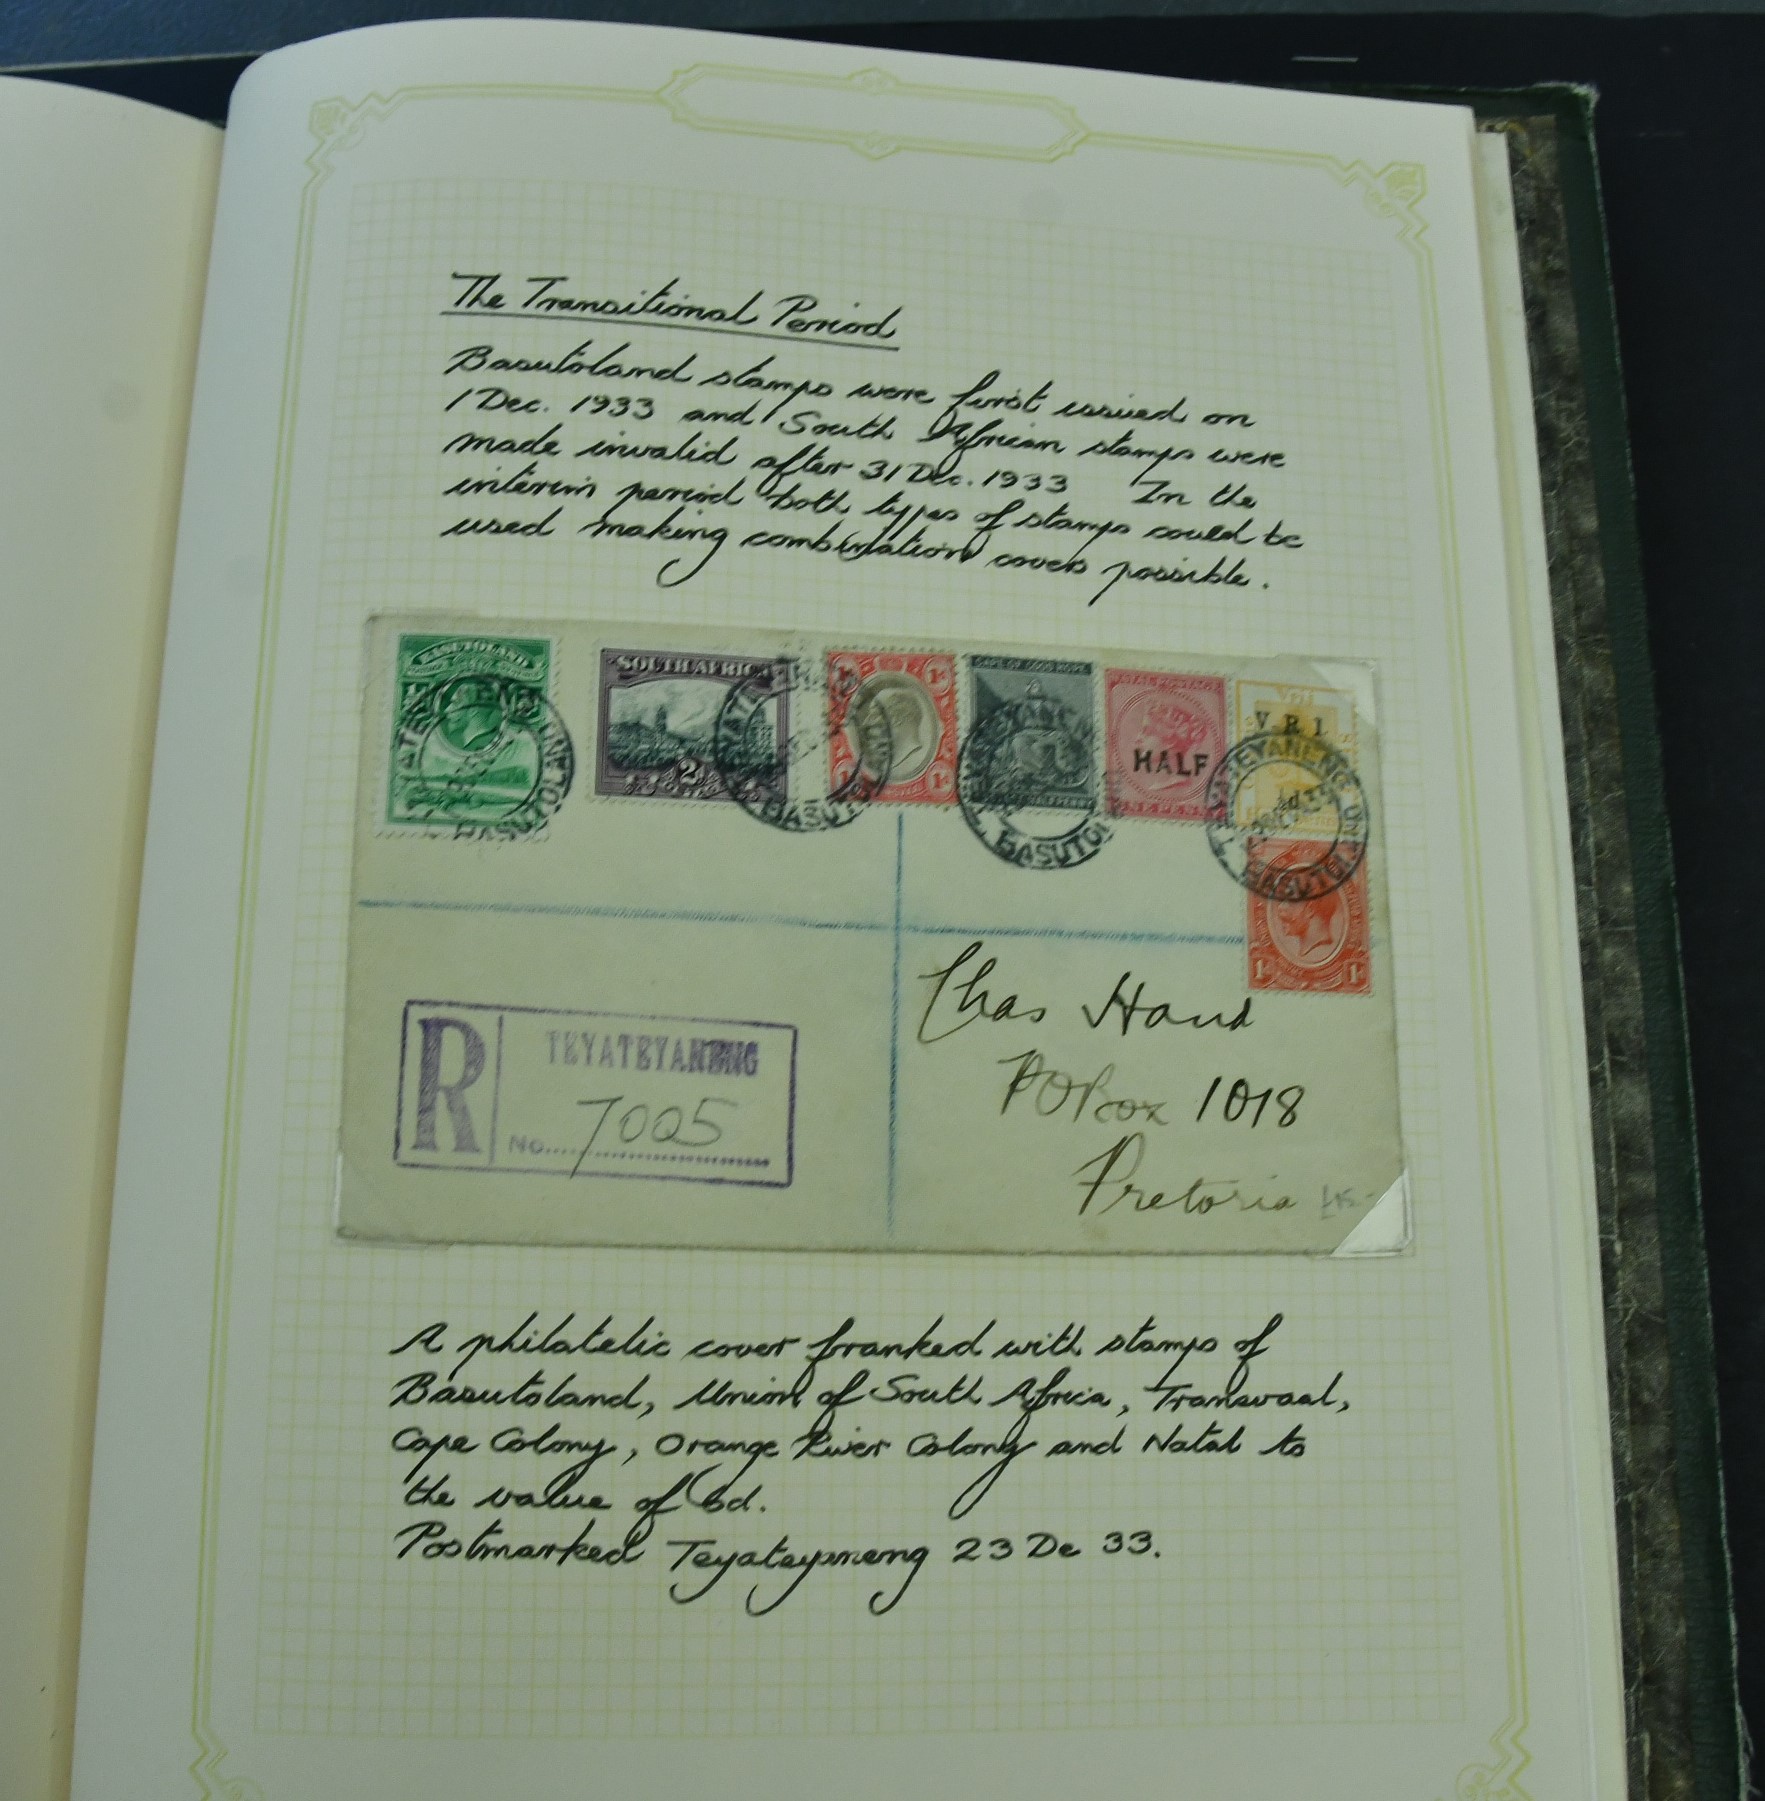 The Transitional Period
Basutoland stamps were first issued on
1 Dec. 1933 and South African stamps were
made invalid after 31 Dec. 1933 In the
interim period both types of stamps could be
used making combination covers possible.
BASUTOLAND
SOUTH AFRICA
2
1d 1d
1d 1d
CAPE OF GOOD HOPE
HALFPENNY
NATAL POSTAGE
HALF
ONE PENNY
V.R.I.
½d
TEYATEYANENG
BASUTOLAND
1d 1d
R
TEYATEYANENG
No. 7005
Chas Hand
PO Box 1018
Pretoria
A philatelic cover franked with stamps of
Basutoland, Union of South Africa, Transvaal,
Cape Colony, Orange River Colony and Natal to
the value of 6d.
Postmarked Teyateyaneng 23 De 33.